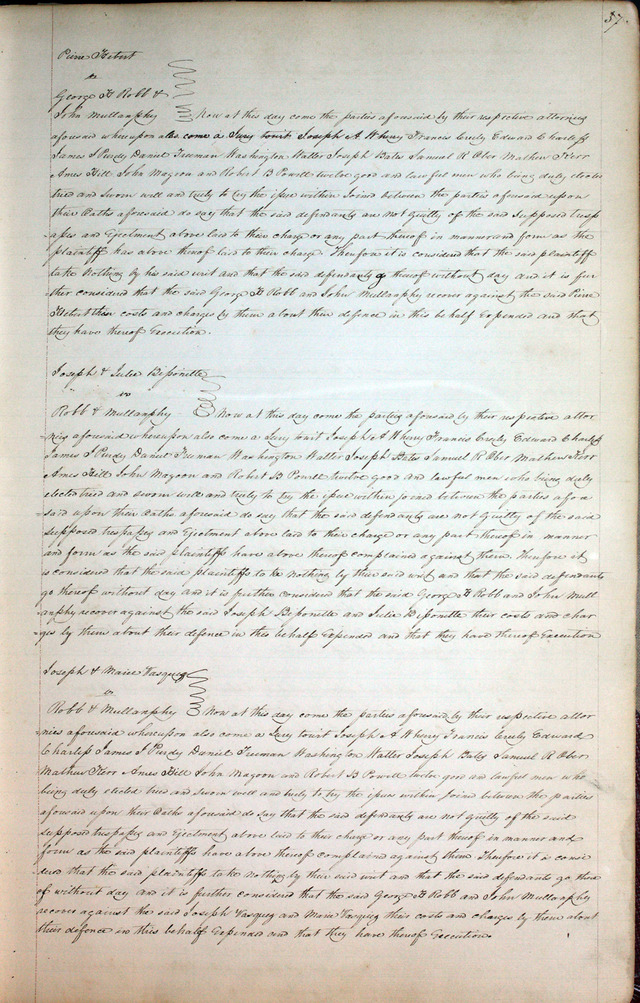 57.
Pierre Hebert
vs
George H Robb &
John Mullanphy Now at this day come the parties aforesaid by their respective attornies
aforesaid whereupon also come a Jury towit Joseph A Wherry Francis Creely Edward Charless
James S Purdy Daniel Freeman Washington Walter Joseph Bates Samuel R Ober Mathew Kerr
Ames Hill John Magoon and Robert B Powell twelve good and lawful men who being duly elected
tried and sworn well and truly to try the issue within Joined between the parties aforesaid upon
their Oaths aforesaid do say that the said defendants are not Guilty of the said Supposed tresp
asses and Ejectment above laid to their charge or any part thereof in manner and form as the
plaintiff has above thereof laid to their charge. Therefore it is considered that the said plaintiff
take Nothing by his said writ and that the said defendants go thereof without day and it is fur
ther considered that the said George H Robb and John Mullanphy recover against the said Pierre
Hebert their costs and charges by them about their defence in this behalf Expended and that
they have thereof Execution.
Joseph & Julie Bissonette
vs
Robb & Mullanphy Now at this day come the parties aforesaid by their respective attor
nies aforesaid whereupon also come a Jury towit Joseph A Wherry Francis Creely Edward Charless
James S Purdy Daniel Freeman Washington Walter Joseph Bates Samuel R Ober Mathew Kerr
Ames Hill John Magoon and Robert B Powell twelve good and lawful men who being duly
elected tried and sworn well and truly to try the issue within joined between the parties afore
said upon their Oaths aforesaid do say that the said defendants are not Guilty of the said
supposed trespasses and Ejectment above laid to their charge or any part thereof in manner
and form as the said plaintiffs have above thereof complained against them. Therefore it
is considered that the said plaintiffs take nothing by their said writ and that the said defendants
go thereof without day and it is further considered that the said George H Robb and John Mull
anphy recover against the said Joseph Bissonette and Julie Bissonette their costs and char
ges by them about their defence in this behalf Expended and that they have thereof Execution
Joseph & Marie Vasquez
vs
Robb & Mullanphy Now at this day come the parties aforesaid by their respective attor
nies aforesaid whereupon also come a Jury towit Joseph A Wherry Francis Creely Edward
Charless James S Purdy Daniel Freeman Washington Walter Joseph Bates Samuel R Ober
Mathew Kerr Ames Hill John Magoon and Robert B Powell twelve good and lawful men who
being duly elected tried and sworn well and truly to try the issue within Joined between the parties
aforesaid upon their Oaths aforesaid do say that the said defendants are not Guilty of the said
supposed trespasses and Ejectment above laid to their charge or any part thereof in manner and
form as the said plaintiffs have above thereof complained against them Therefore it is consi
dered that the said plaintiffs take nothing by their said writ and that the said defendants go there
of without day and it is further considered that the said George H Robb and John Mullanphy
recover against the said Joseph Vasquez and Marie Vasquez their costs and charges by them about
their defence in this behalf Expended and that they have thereof Execution.